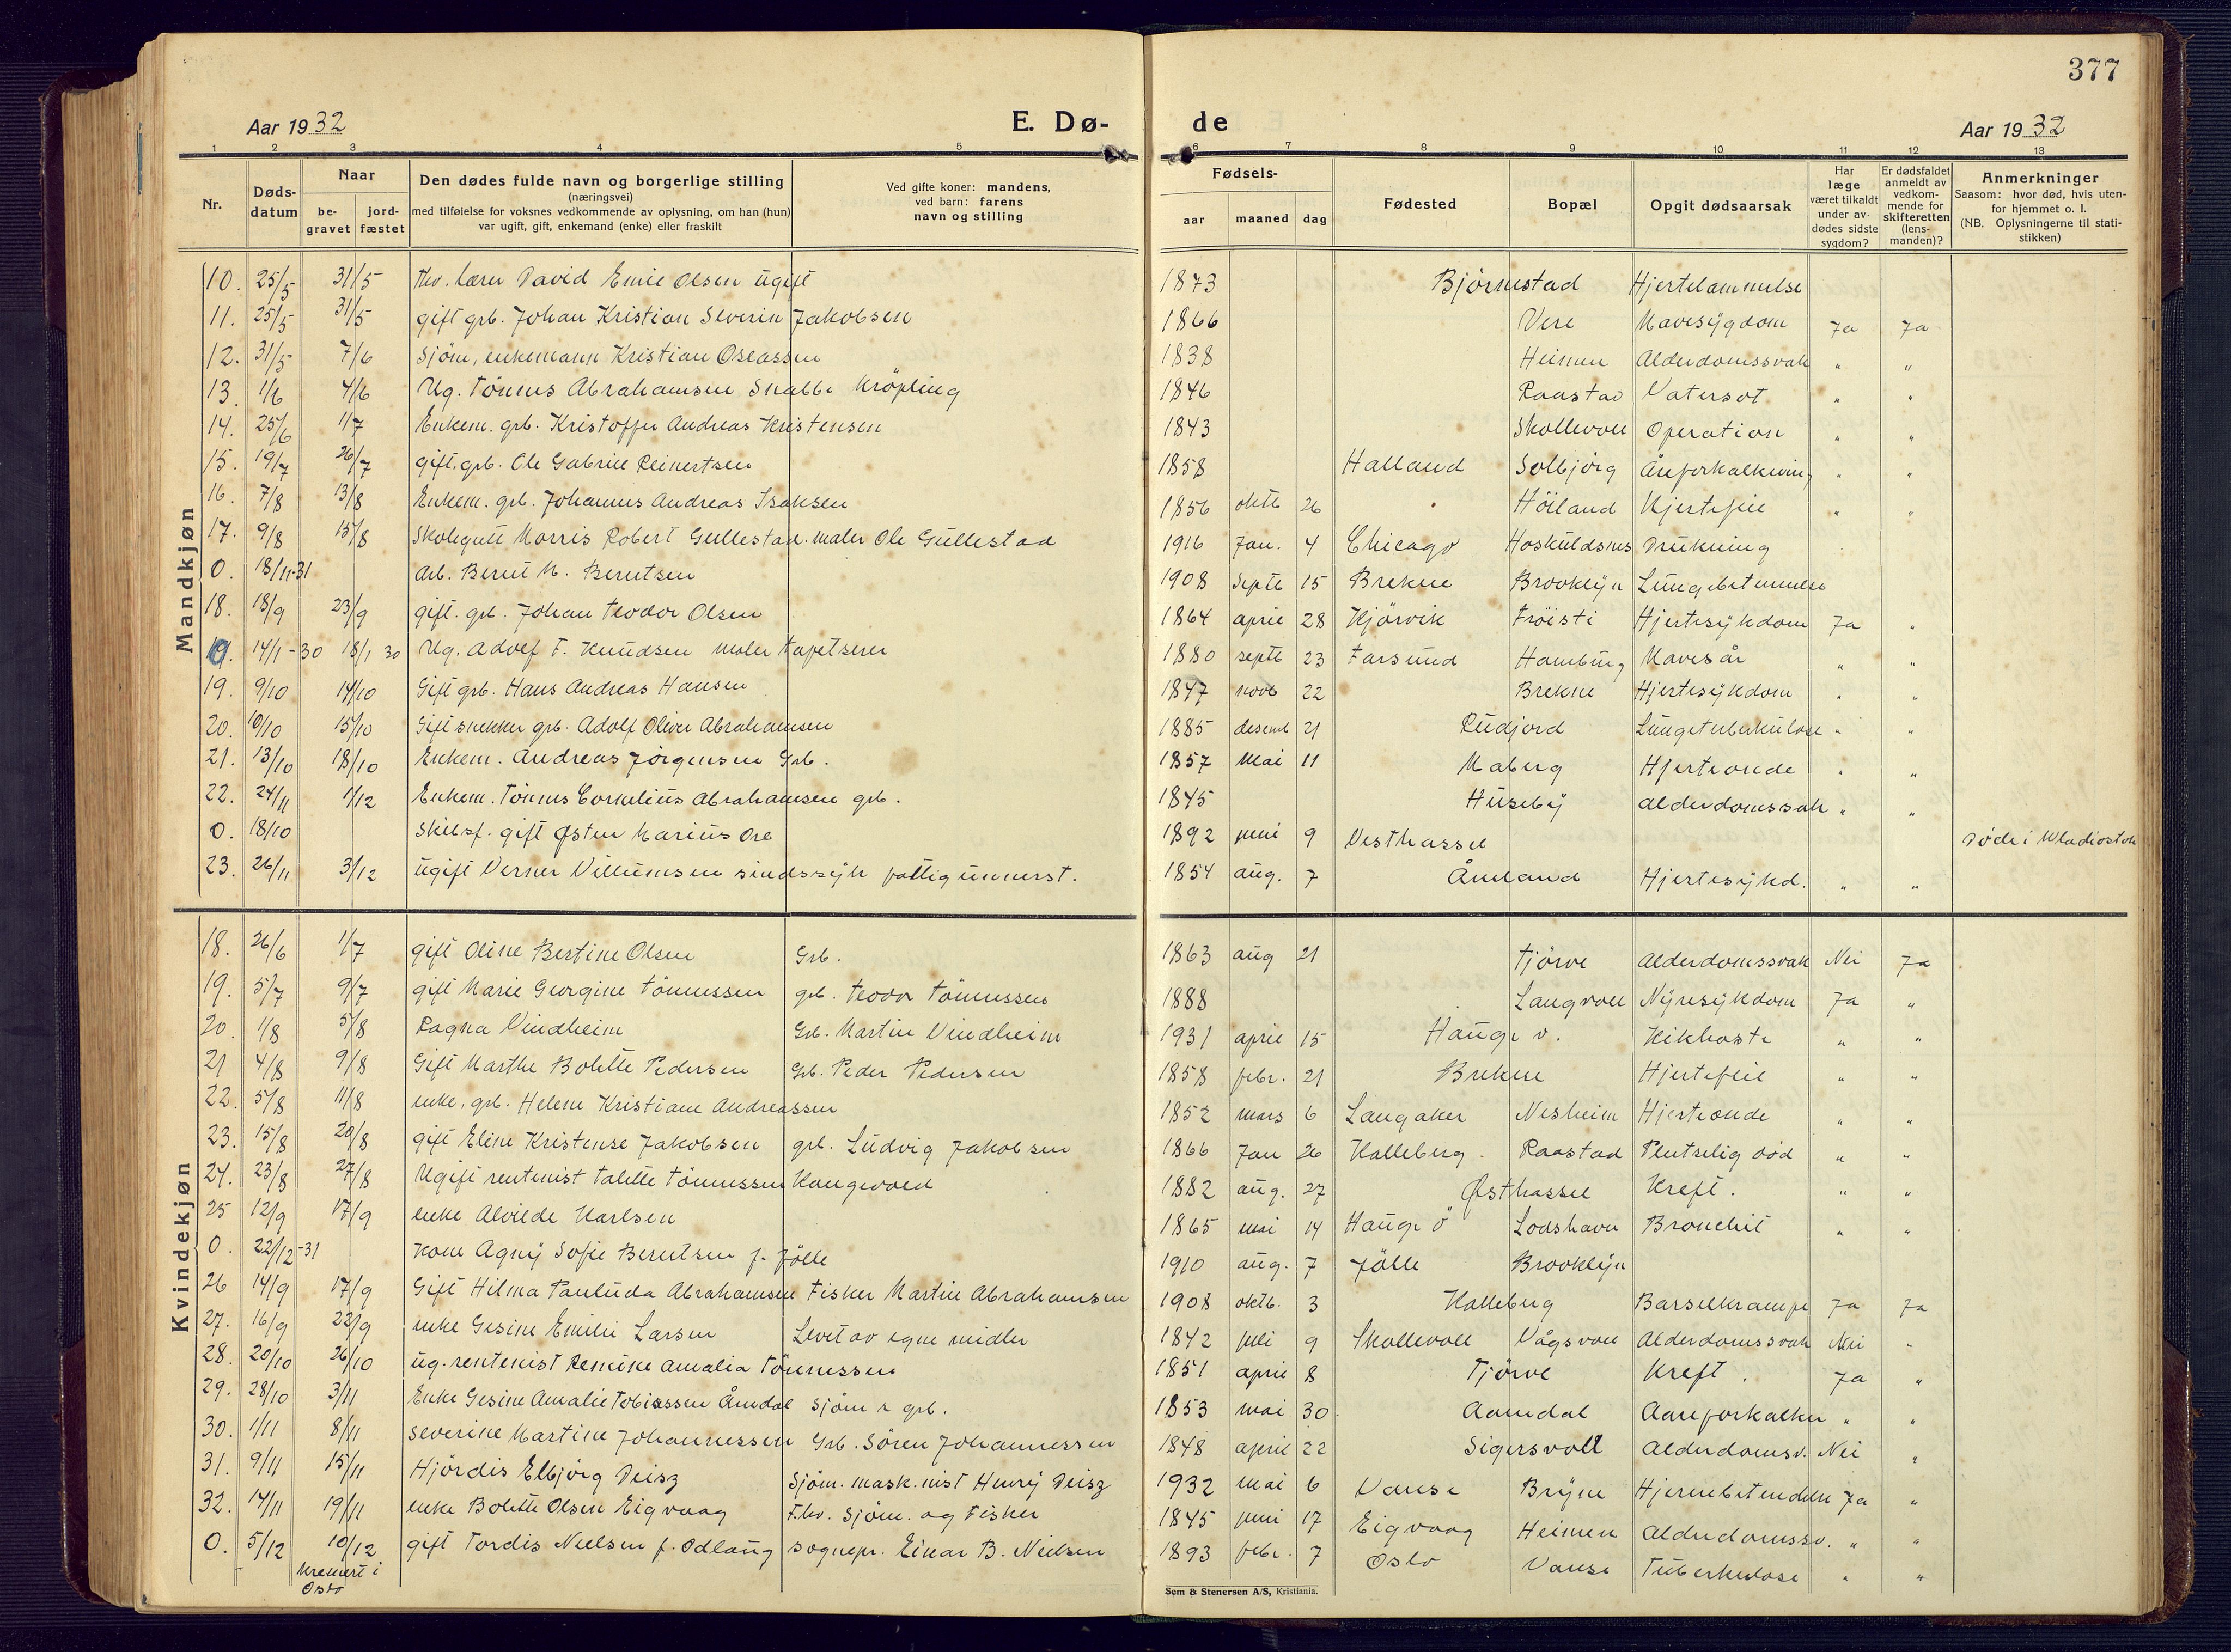 377
Aar 1932
E. Dø-
de
Aar 1932
1 2 3 4 5 6 7 8 9 10 11 12 13
Nr.
Døds-
datum
Naar
be-
gravet
jord-
fæstet
Den dødes fulde navn og borgerlige stilling
(næringsvei)
med tilføielse for voksnes vedkommende av oplysning, om han (hun)
var ugift, gift, enkemand (enke) eller fraskilt
Ved gifte koner: mandens,
ved barn: farens
navn og stilling
Fødsels-
aar maaned dag
Fødested
Bopæl
Opgit dødsaarsak
Har
læge
været tilkaldt
under av-
dødes sidste
sygdom?
Er dødsfaldet
anmeldt av
vedkom-
mende for
skifteretten
(lens-
manden)?
Anmerkninger
Saasom: hvor død, hvis uten-
for hjemmet o. l.
(NB. Oplysningerne til stati-
stikken)
Mandkjøn
10. 25/5 31/5 fhv. lærer David Emil Olsen ugift 1873 Bjørnestad Hjertelammelse
11. 25/5 31/5 gift grb. Johan Kristian Severin Jakobsen 1866 Vere Mavesygdom Ja Ja
12. 31/5 7/6 Sjøm, enkemann Kristian Oseassen 1838 Heimen Alderdomssvak " "
13. 1/6 4/6 Ug. Tönnes Abrahamsen Snabbe Kröpling 1846 Raastad Vatersot " "
14. 25/6 1/7 Enkem. grb. Kristoffer Andreas Kristensen 1843 Skollevoll Operation " "
15. 19/7 26/7 gift. grb. Ole Gabriel Reinertsen 1858 Halland Solbjörg Åreforkalkning " "
16. 7/8 13/8 Enkem. grb. Johannes Andreas Isaksen 1856 oktb 26 " Höiland Hjertefeil " "
17. 9/8 15/8 Skolegutt Morris Robert Gullestad. maler Ole Gullestad 1916 Jan. 4 Chicago Hoskuldsnes Drukning
0. 18/11-31 Arb. Berent M. Berntsen 1908 Septb 15 Brekne Brooklyn Lungebetennelse
18. 18/9 23/9 gift. grb. Johan Teodor Olsen 1864 april 28 Kjörvik Fröisti Hjertesykdom Ja "
19. 14/1-30 18/1 30 Ug. Adolf F. Knudsen maler tapetserer 1880 septb 23 Farsund Hamburg Mavesår " "
19. 9/10 14/10 Gift grb. Hans Andreas Hansen 1847 novb 22 Brekne Hjertesykdom " "
20. 10/10 15/10 Gift snekker grb. Adolf Oliver Abrahamsen 1885 desemb 21 Rudjord Lungetuberkulose " "
21. 13/10 18/10 Enkem. Andreas Jörgensen Grb. 1857 Mai 11 Maberg Hjerteonde " "
22. 24/11 1/12 Enkem. Tönnes Cornelius Abrahamsen grb. 1845 Huseby Alderdomssvak " "
0. 18/10 Skibsf. gift Østen Marius Ore 1892 juni 9 Vesthassel Döde i Wladiostok
23. 26/11 3/12 ugift Verner Villumsen sindssyk fattigunnerst. 1854 aug. 7 Åmland Hjertesykd. " "
Kvindekjøn
18. 26/6 1/7 gift Oline Bertine Olsen Grb. 1863 aug 21 Tjörve Alderdomssvak Nei Ja
19. 5/7 9/7 gift Marie Georgine Tönnessen grb. Teodor Tönnessen 1888 Langvoll Nyresykdom Ja "
20. 1/8 5/8 Ragna Vindheim Grb. Martin Vindheim 1931 april 15 Hauge v. Kikhoste " "
21 4/8 9/8 Gift Marthe Bolette Pedersen Grb. Peder Pedersen 1858 febr. 21 Brekne Hjertefeil " "
22. 5/8 11/8 enke, grb. Helene Kristiane Andreassen 1852 mars 6 Langaker Nesheim Hjerteonde " "
23. 15/8 20/8 gift Eline Kristense Jakobsen grb. Ludvig Jakobsen 1866 Jan 26 Kalleberg. Raastad Plutselig död " "
24. 23/8 27/8 Ugift rentenist Talette Tönnessen Haugevoll 1882 aug. 27 Østhassel Kreft. " "
25 12/9 17/9 enke Alvilde Karlsen 1865 mai 14 Hauge ö Loshavn Bronchit " "
0. 22/12-31 Kone Agny Sofie Berntsen f. Jölle 1910 aug. 7 Jölle Brooklyn
26 14/9 17/9 Gift Hilma Pauluda Abrahamsen Fisker Martin Abrahamsen 1908 oktb. 3 Kalleberg Barselkrampe Ja Ja
27. 16/9 22/9 enke Gesine Emilie Larsen Levet av egne midler 1842 juli 9 Skollevoll Vågsvoll Alderdomssvak Nei "
28. 20/10 26/10 ug. rentenist Remine Amalia Tönnessen 1851 april 8 Tjörve Kreft. Ja "
29. 28/10 3/11 Enke Gesine Amalie Tobiassen Åmdal sjöm & grb. 1853 mai 30. Aamdal Aareforkalkn " "
30. 1/11 8/11 Severine Martine Johannessen Grb. Sören Johannessen 1848 april 22 Sigersvoll Alderdomsv. Nei "
31. 9/11 15/11 Hjördis Elbjörg Deisz Sjöm. mask.nist Henry Deisz 1932 mai 6 Vanse Bryne Hjernebetendelse Ja "
32. 14/11 19/11 enke Bolette Olsen Eigvaag F.hv. Sjöm. og Fisker 1845 juni 17 Eigvaag Heimen Alderdomssv. " "
0. 5/12 10/12 gift Tordis Nielsen f. Odlaug sognepr. Einar B. Nielsen 1893 febr. 7 Oslo Vanse Tuberkulose " "
Kremert i
Oslo
Sem & Stenersen A/S, Kristiania.